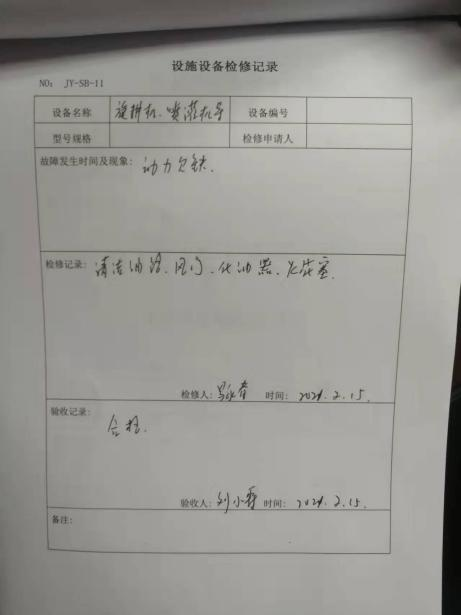 设施设备检修记录
NO: JY-SB-11
设备名称 旋耕机、喷灌机等 设备编号
型号规格 检修申请人
故障发生时间及现象: 动力欠缺.
检修记录: 清洁油路、风门、化油器、火花塞.
检修人: 时间: 2024.2.15.
验收记录:
合格.
验收人: 刘小 时间: 2024.2.15.
备注: